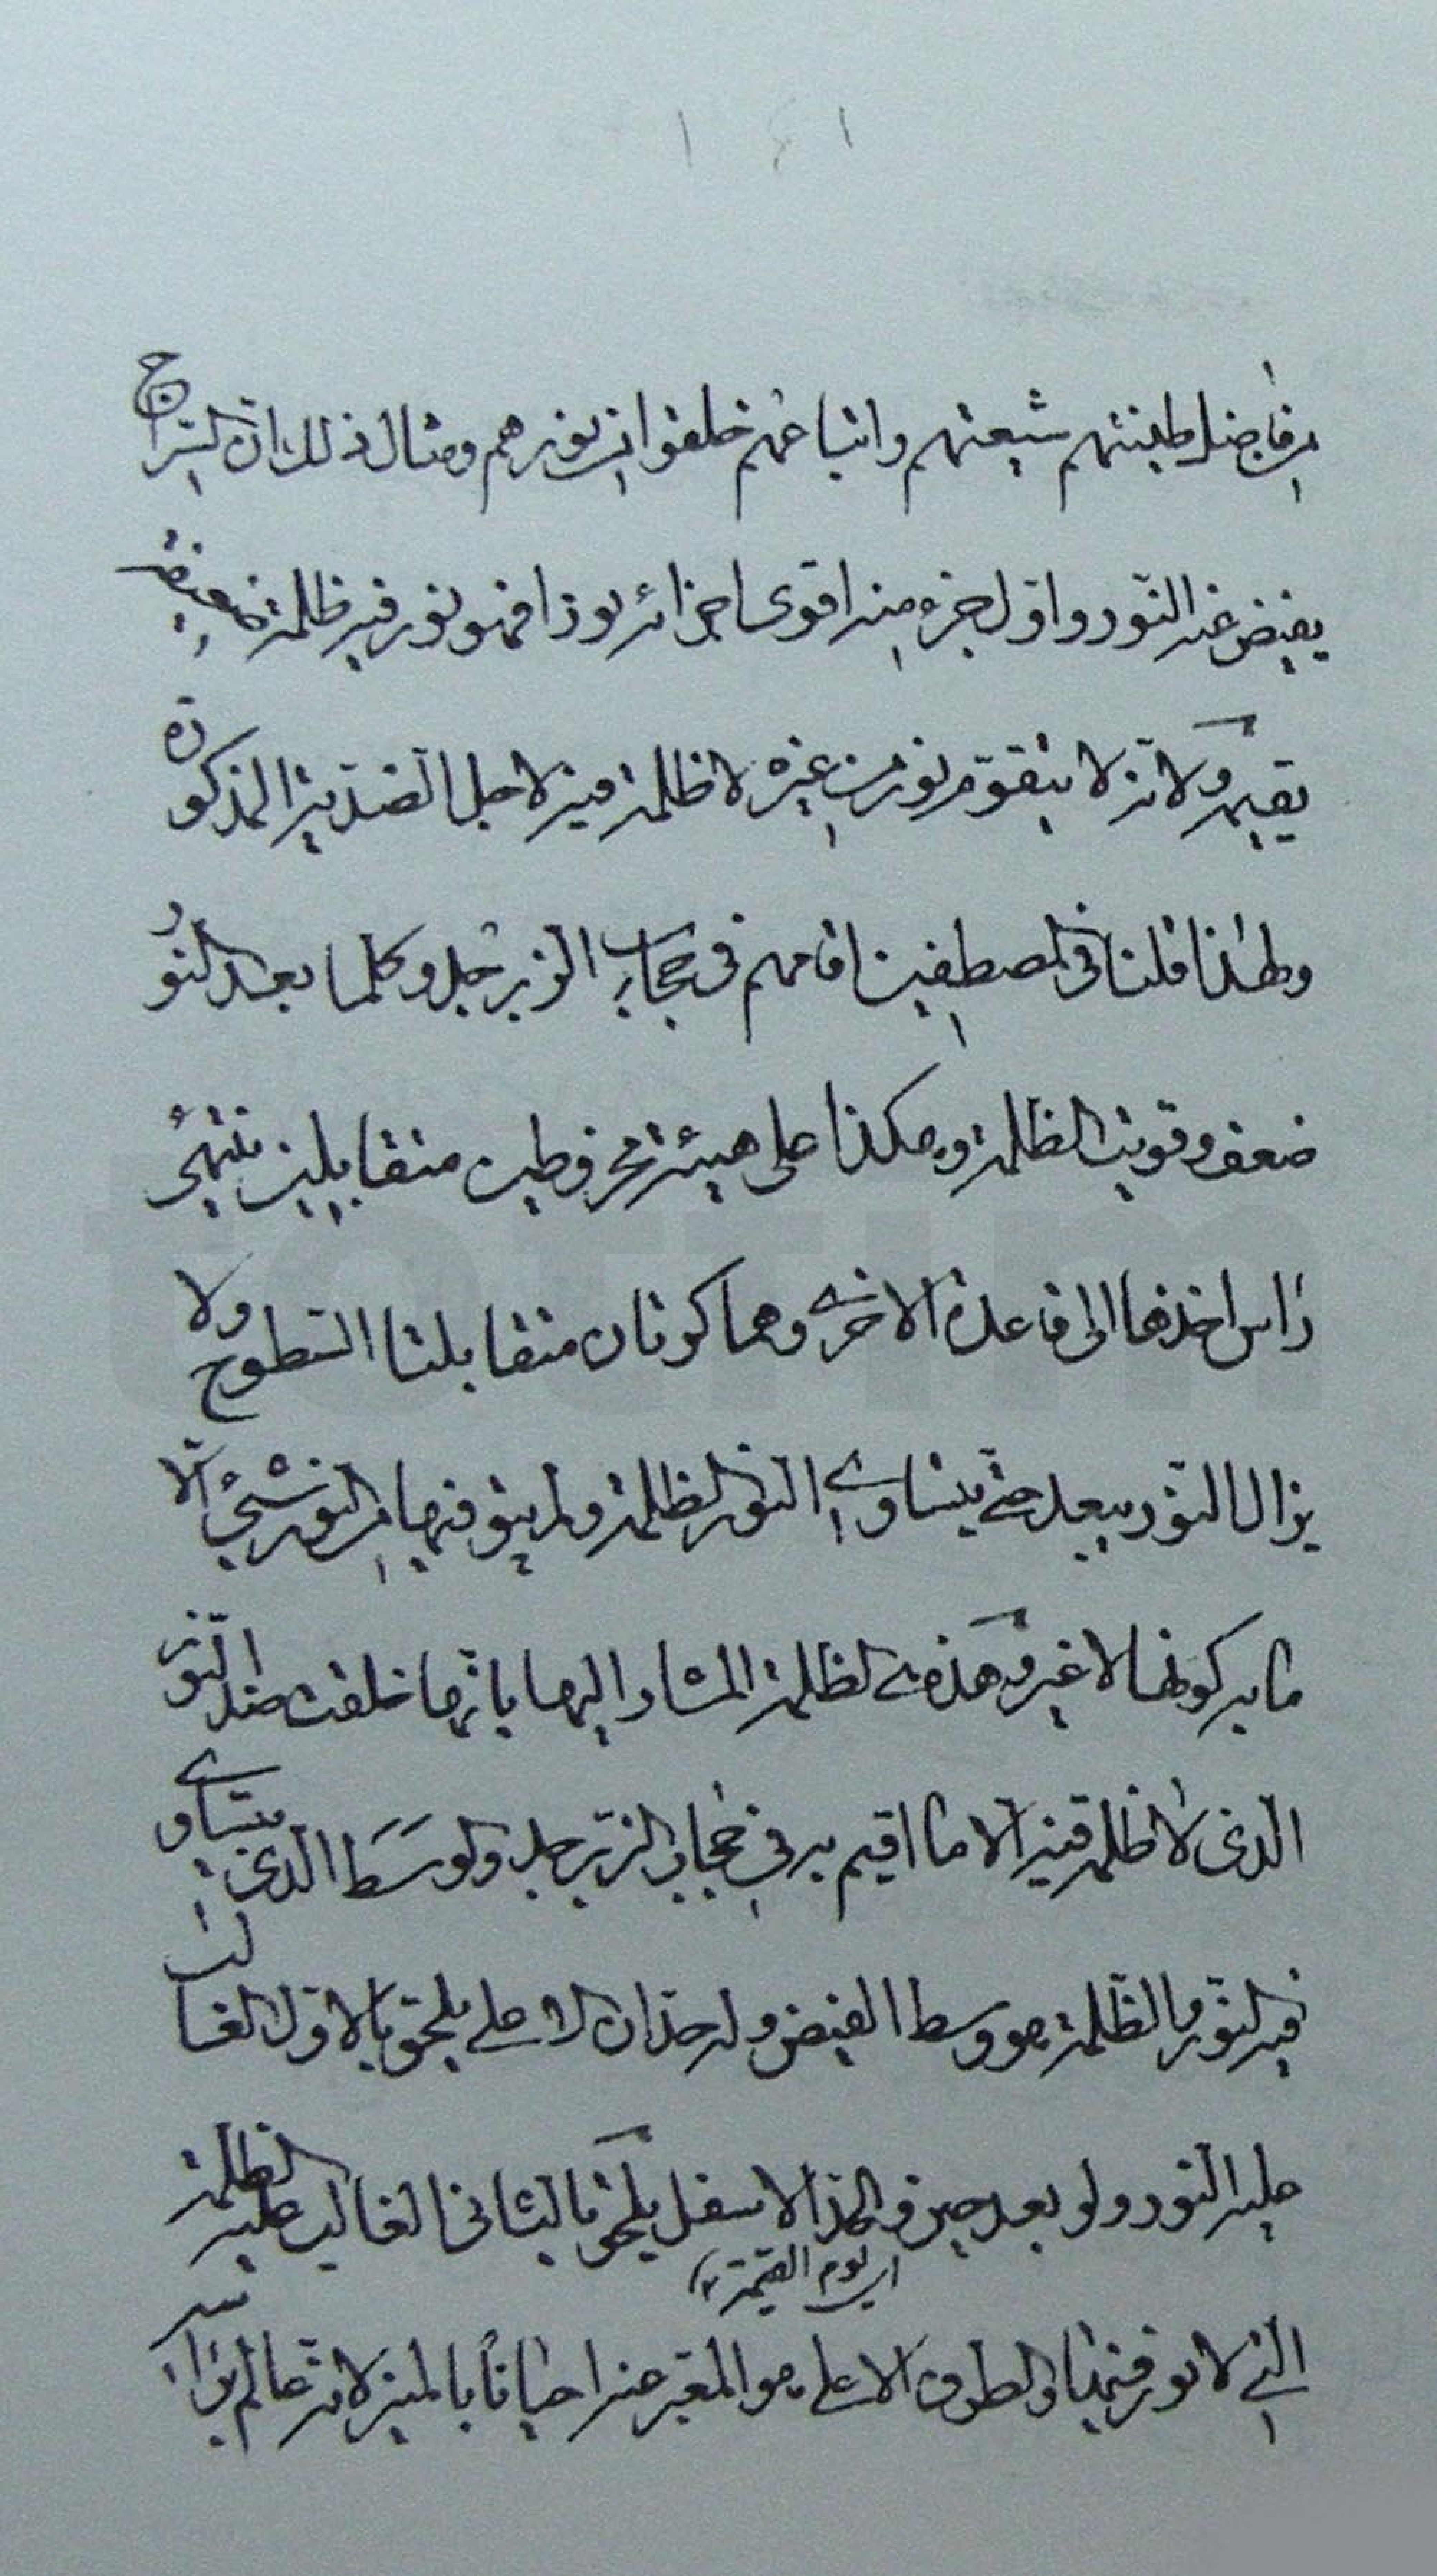 ١٤١
من فاضل طينتهم شيعتهم واتباعهم خلقوا من نورهم ومثال ذلك ان السراج
يفيض عنه النور واول جزء منه اقوى اجزائه نورا فهو نور فيه ظلمة
يقيمه ولانه لا يتقوم نور من غيره لا ظلمة فيه لاجل الضدين المذكورة
ولهذا قلنا في المصطفين اقامهم في حجاب الزبرجد وكلما بعد النور
ضعف وقويت الظلمة وهكذا على هيئة مخروطين متقابلين ينتهي
راس احدها الى قاعدة الاخرى وهما كرتان متقابلتا السطوح ولا
يزال النور يبعد حتى يتساوى النور الظلمة ولم يبق فيها من النور شيء الا
ما به كونها لا غير وهذه الظلمة المشار اليها بانها خلقت ضد النور
الذي لا ظلمة فيه الا ما اقيم به في حجاب الزبرجد والوسط الذي يتساوى
فيه النور والظلمة هو وسط الفيض وله حدان الاعلى يلحق بالاول الغالب
عليه النور ولو بعد حين والحد الاسفل يلحق بالثاني الغالب عليه الظلمة
اي يوم القيمة
التي لا نور فيها والطرف الاعلى هو المعبر عنه احيانا لانه عالم